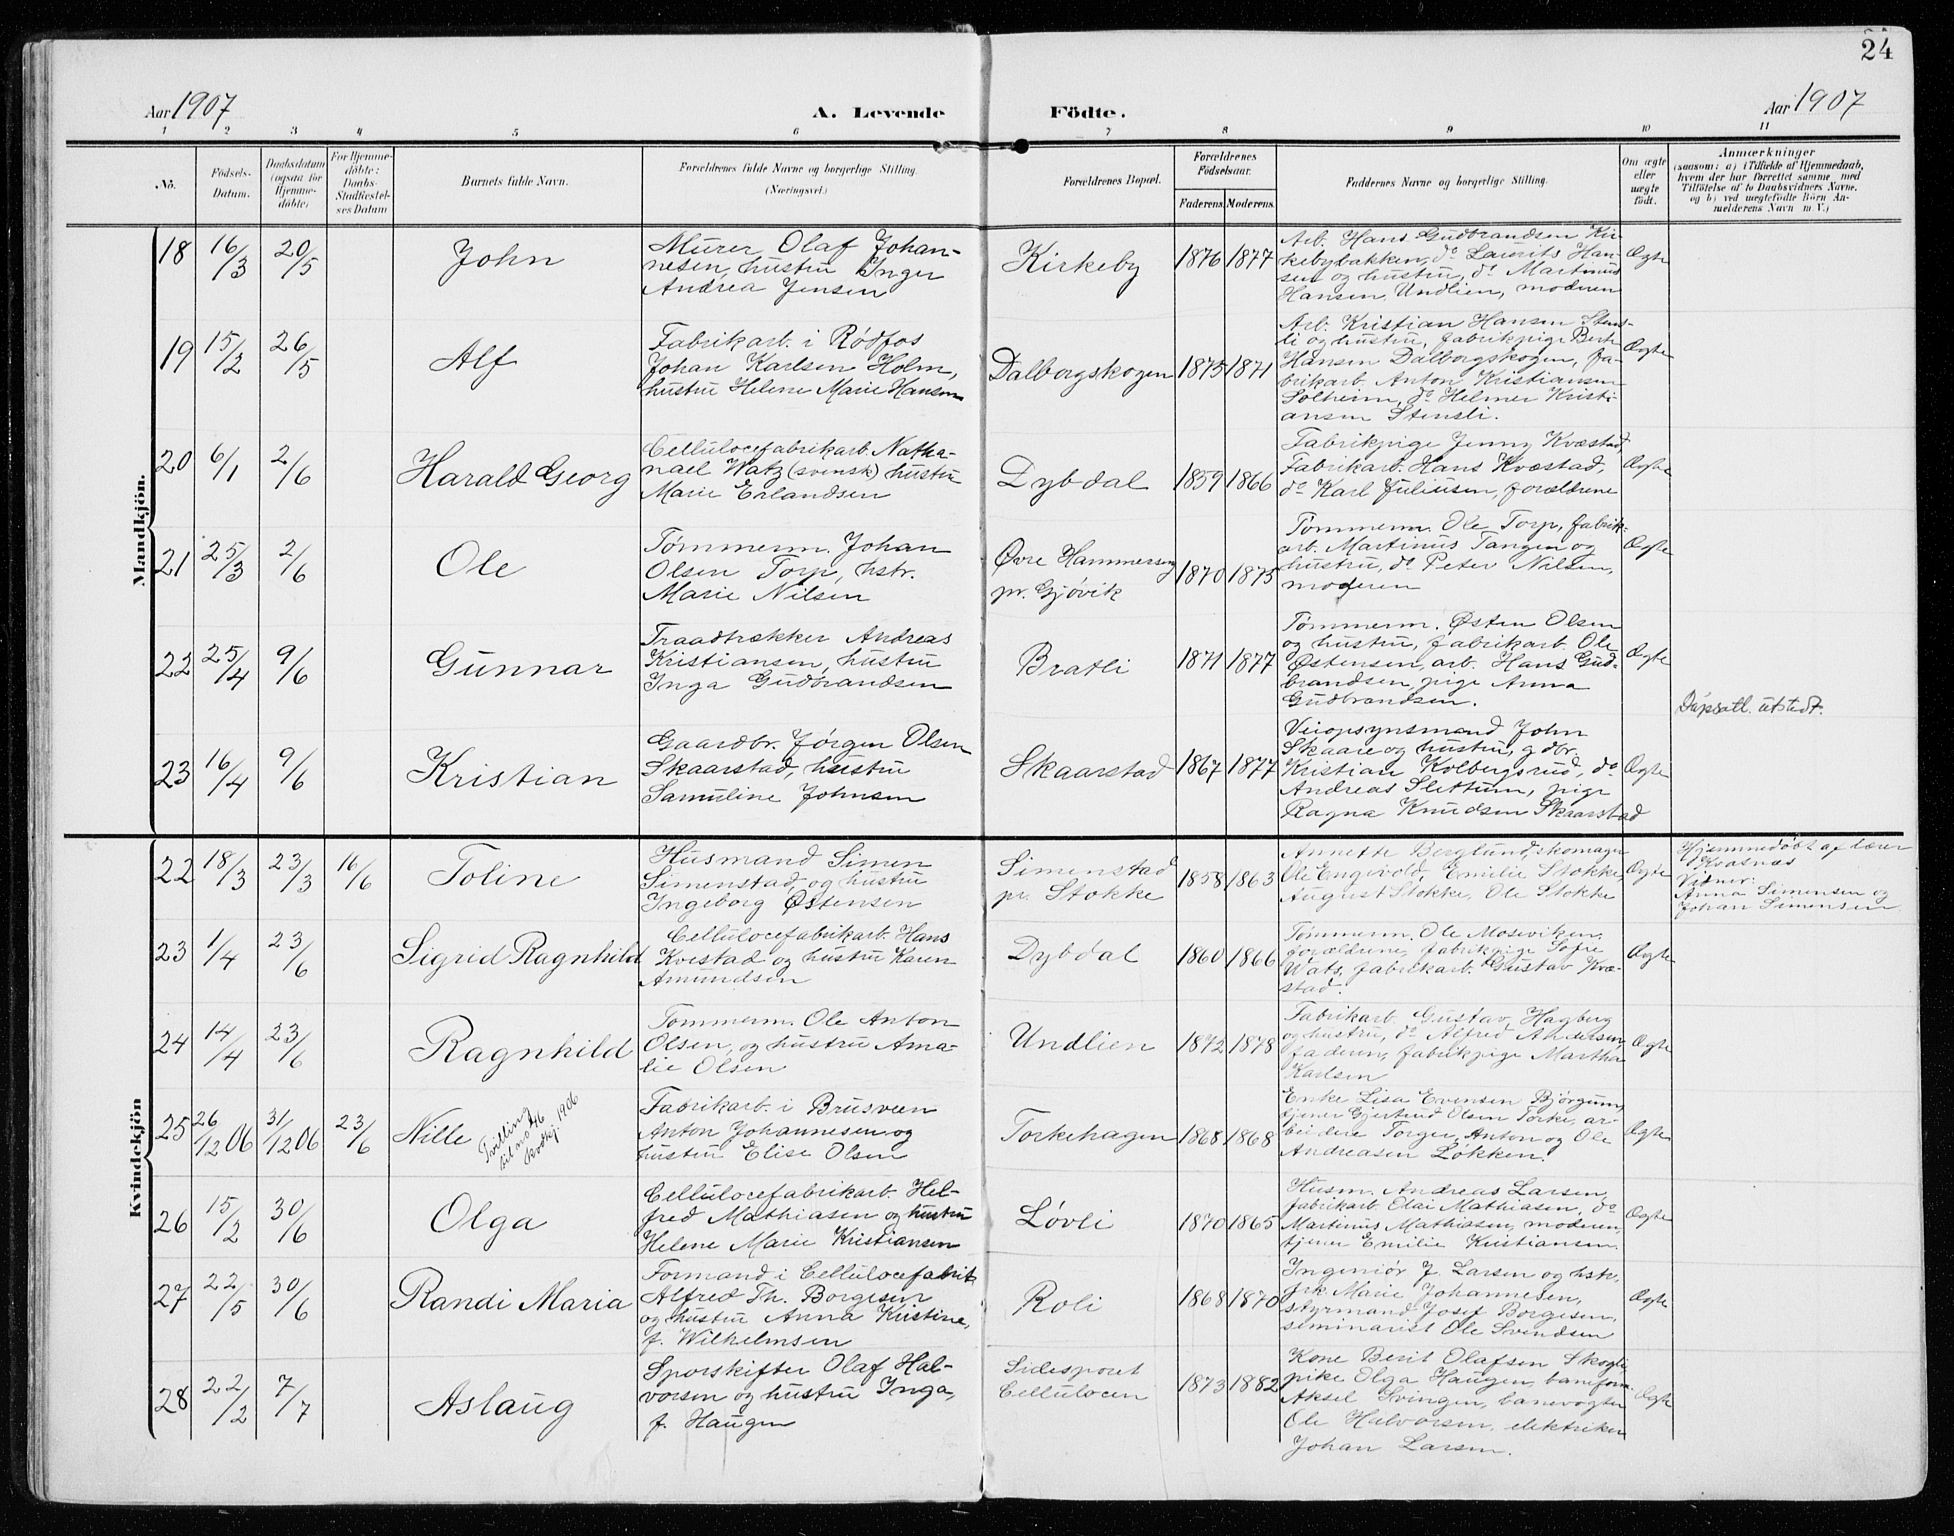 24
Aar 1907
A. Levende Födte.
Aar 1907
1 2 3 4 5 6 7 8 9 10 11
No.
Födsels-
Datum.
Daabsdatum
(ogsaa for
Hjemme-
döbte)
For Hjemme-
döbte:
Daabs-
Stadfæstel-
ses Datum
Barnets fulde Navn.
Forældrenes fulde Navne og borgerlige Stilling.
(Næringsvei.)
Forældrenes Bopæl.
Forældrenes
Födselsaar.
Faderens. Moderens.
Faddernes Navne og borgerlige Stilling.
Om ægte
eller
uægte
födt.
Anmærkninger
(saasom: a) i Tilfælde af Hjemmedaab,
hvem der har forrettet samme, med
Tilföielse af to Daabsvidners Navne,
og b) ved uægtefödte Börn An-
melderens Navn m. V.)
Mandkjön.
18 16/3 20/5 John
Murer Olaf Johan-
nesen, hustru Inger
Andrea Jensen
Kirkeby 1876 1877
Arb. Hans Gudbrandsen Kir-
kebybakken, do Laurits Han-
sen og hustru, do Martinus
Hansen, Undlien, moderen
Ægte
19 15/2 26/5 Alf
Fabrikarb. i Rødfos
Johan Karlsen Holm,
hustru Helene Marie Hansen
Dalborgskogen 1875 1871
Arb. Kristian Hansen Stens-
li og hustru, fabrikpige Berth
Hansen Dalborgskogen, fa-
brikarb. Anton Kristiansen
Solheim, do Helmer Kristi-
ansen Stensli.
Ægte
20 6/1 2/6 Harald Georg
Cellulocefabrikarb. Natha-
nael Watz (svensk) hustru
Marie Erlandsen
Dybdal 1859 1866
Fabrikpige Jenny Kvæstad,
Fabrikarb. Hans Kvæstad,
do Karl Juliusen, forældrene
Ægte
21 25/3 2/6 Ole
Tømmerm. Johan
Olsen Torp, hstr.
Marie Nilsen
Øvre Hammerseng
pr. Gjøvik 1870 1875
Tømmerm. Ole Torp, fabrik-
arb. Martinus Tangen og
hustru, do Peter Nilsen,
moderen
Ægte
22 25/4 9/6 Gunnar
Traadtrækker Andreas
Kristiansen, hustru
Inga Gudbrandsen
Bratli 1871 1877
Tømmerm. Østen Olsen
og hustru, fabrikarb. Ole
Østensen, arb. Hans Gud-
brandsen, pige Anna
Gudbrandsen.
Ægte
Dåpsatt. utstedt.
23 16/4 9/6 Kristian
Gaardbr. Jørgen Olsen
Skaarstad, hustru
Samuline Johnsen
Skaarstad 1867 1877
Veiopsynsmand John
Skaare og hustru, gdbr.
Kristian Kolbergsrud, do
Andreas Slettum, pige
Ragna Knudsen Skaarstad
Ægte
Kvindekjön
22 18/3 23/3 16/6 Toline
Husmand Simen
Simenstad, og hustru
Ingeborg Østensen
Simenstad
pr. Stokke 1858 1863
Annette Berglund, skomager
Ole Engevold, Emilie Stokke,
August Stokke, Ole Stokke
Ægte
Hjemmedøbt af lærer
Kvasnæs
Vidner:
Anna Simensen og
Johan Simensen
23 1/4 23/6 Sigrid Ragnhild
Cellulocefabrikarb. Hans
Kvestad og hustru Karen
Amundsen
Dybdal 1860 1866
Tømmerm. Ole Moseviken,
forældrene, fabrikpige Sofie
Wats, fabrikarb. Gustav Kvæ-
stad.
Ægte
24 14/4 23/6 Ragnhild
Tømmerm. Ole Anton
Olsen, og hustru Ama-
lie Olsen
Undlien 1872 1878
Fabrikarb. Gustav Hagberg
og hustru, do Alfred Andersen,
faderen, fabrikpige Martha
Karlsen
Ægte
25 26/12 06 31/12 06 23/6 Nille
Tvilling
til no 46
kvdkj. 1906
Fabrikarb. i Brusveen
Anton Johannesen og
hustru Elise Olsen
Torkehagen 1868 1868
Enke Lisa Evensen Bjørgum,
tjener Gjertrud Olsen Torke, ar-
beidere Torger, Anton og Ole
Andreasen Løkken.
Ægte
26 15/2 30/6 Olga
Cellulocefabrikarb. Hel-
fred Mathiasen og hustru
Helene Marie Kristiansen
Løvli 1870 1865
Husm. Andreas Larsen,
fabrikarb. Olai Mathiasen, do
Martinus Mathiasen, moderen,
tjener Emilie Kristiansen.
Ægte
27 22/5 30/6 Randi Maria
Formand i Cellulocefabrik
Alfred Th. Borgesen
og hustru Anna Kristine,
f. Wilhelmsen
Roli 1868 1870
Ingeniør J. Larsen og hstr.,
frk. Marie Johannesen,
styrmand Josef Borgesen,
seminarist Ole Svendsen
Ægte
28 22/2 7/7 Aslaug
Sporskifter Olaf Hal-
vorsen og hustru Inga,
f. Haugen
Sidesporet
Cellulocen 1873 1882
Kone Berit Olafsen Skogli
pike Olga Haugen, baneform.
Aksel Svingen, banevogter
Ole Halvorsen, elektriker
Johan Larsen.
Ægte